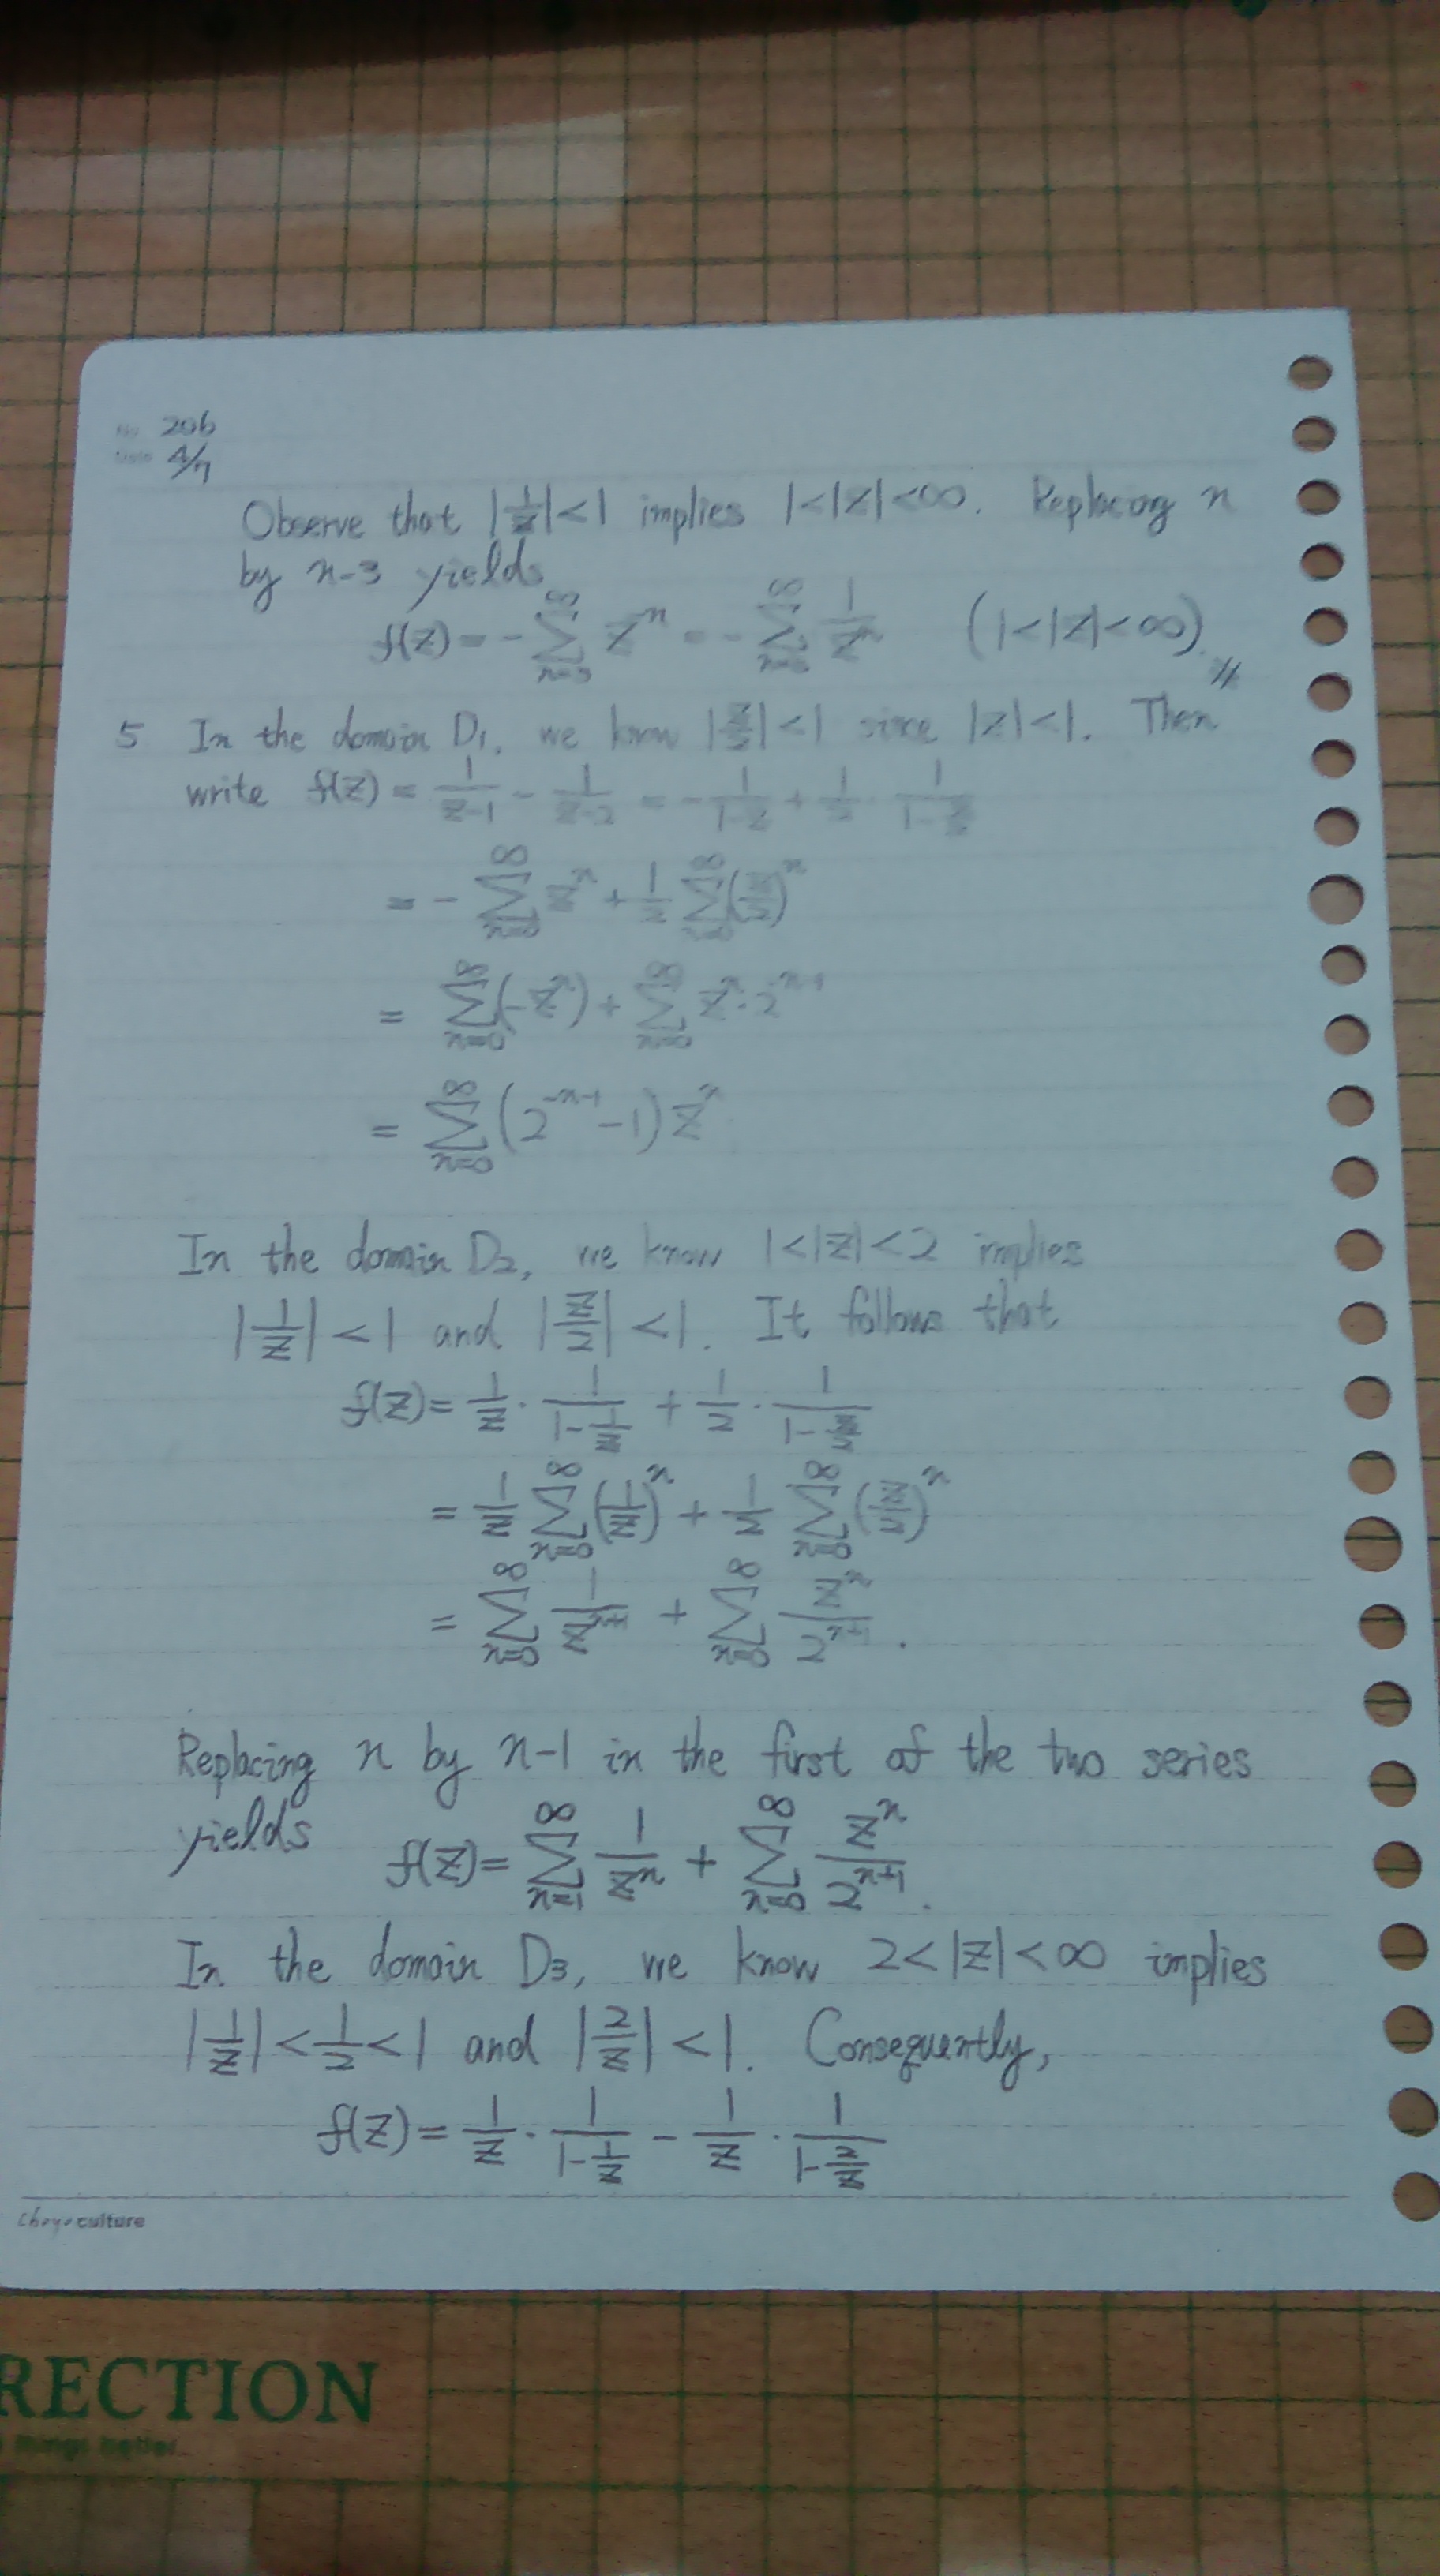 No. 206
Date 4/7
Observe that |1/z|<1 implies 1<|z|<∞. Replacing n
by n-3 yields
f(z) = -∑_{n=3}^{∞} z^{-n} = -∑_{n=3}^{∞} 1/z^n (1<|z|<∞).
5 In the domain D₁, we know |z/2|<1 since |z|<1. Then
write f(z) = 1/(z-1) - 1/(z-2) = -1/(1-z) + 1/2 · 1/(1-z/2)
= -∑_{n=0}^{∞} z^n + 1/2 ∑_{n=0}^{∞} (z/2)^n
= ∑_{n=0}^{∞} (-z^n) + ∑_{n=0}^{∞} z^n · 2^{-n-1}
= ∑_{n=0}^{∞} (2^{-n-1} - 1) z^n.
In the domain D₂, we know 1<|z|<2 implies
|1/z| < 1 and |z/2| < 1. It follows that
f(z) = 1/z · 1/(1-1/z) + 1/2 · 1/(1-z/2)
= 1/z ∑_{n=0}^{∞} (1/z)^n + 1/2 ∑_{n=0}^{∞} (z/2)^n
= ∑_{n=0}^{∞} 1/z^{n+1} + ∑_{n=0}^{∞} z^n/2^{n+1}.
Replacing n by n-1 in the first of the two series
yields f(z) = ∑_{n=1}^{∞} 1/z^n + ∑_{n=0}^{∞} z^n/2^{n+1}.
In the domain D₃, we know 2<|z|<∞ implies
|1/z| < 1/2 < 1 and |2/z| < 1. Consequently,
f(z) = 1/z · 1/(1-1/z) - 1/z · 1/(1-2/z)
culture
RECTION
things better